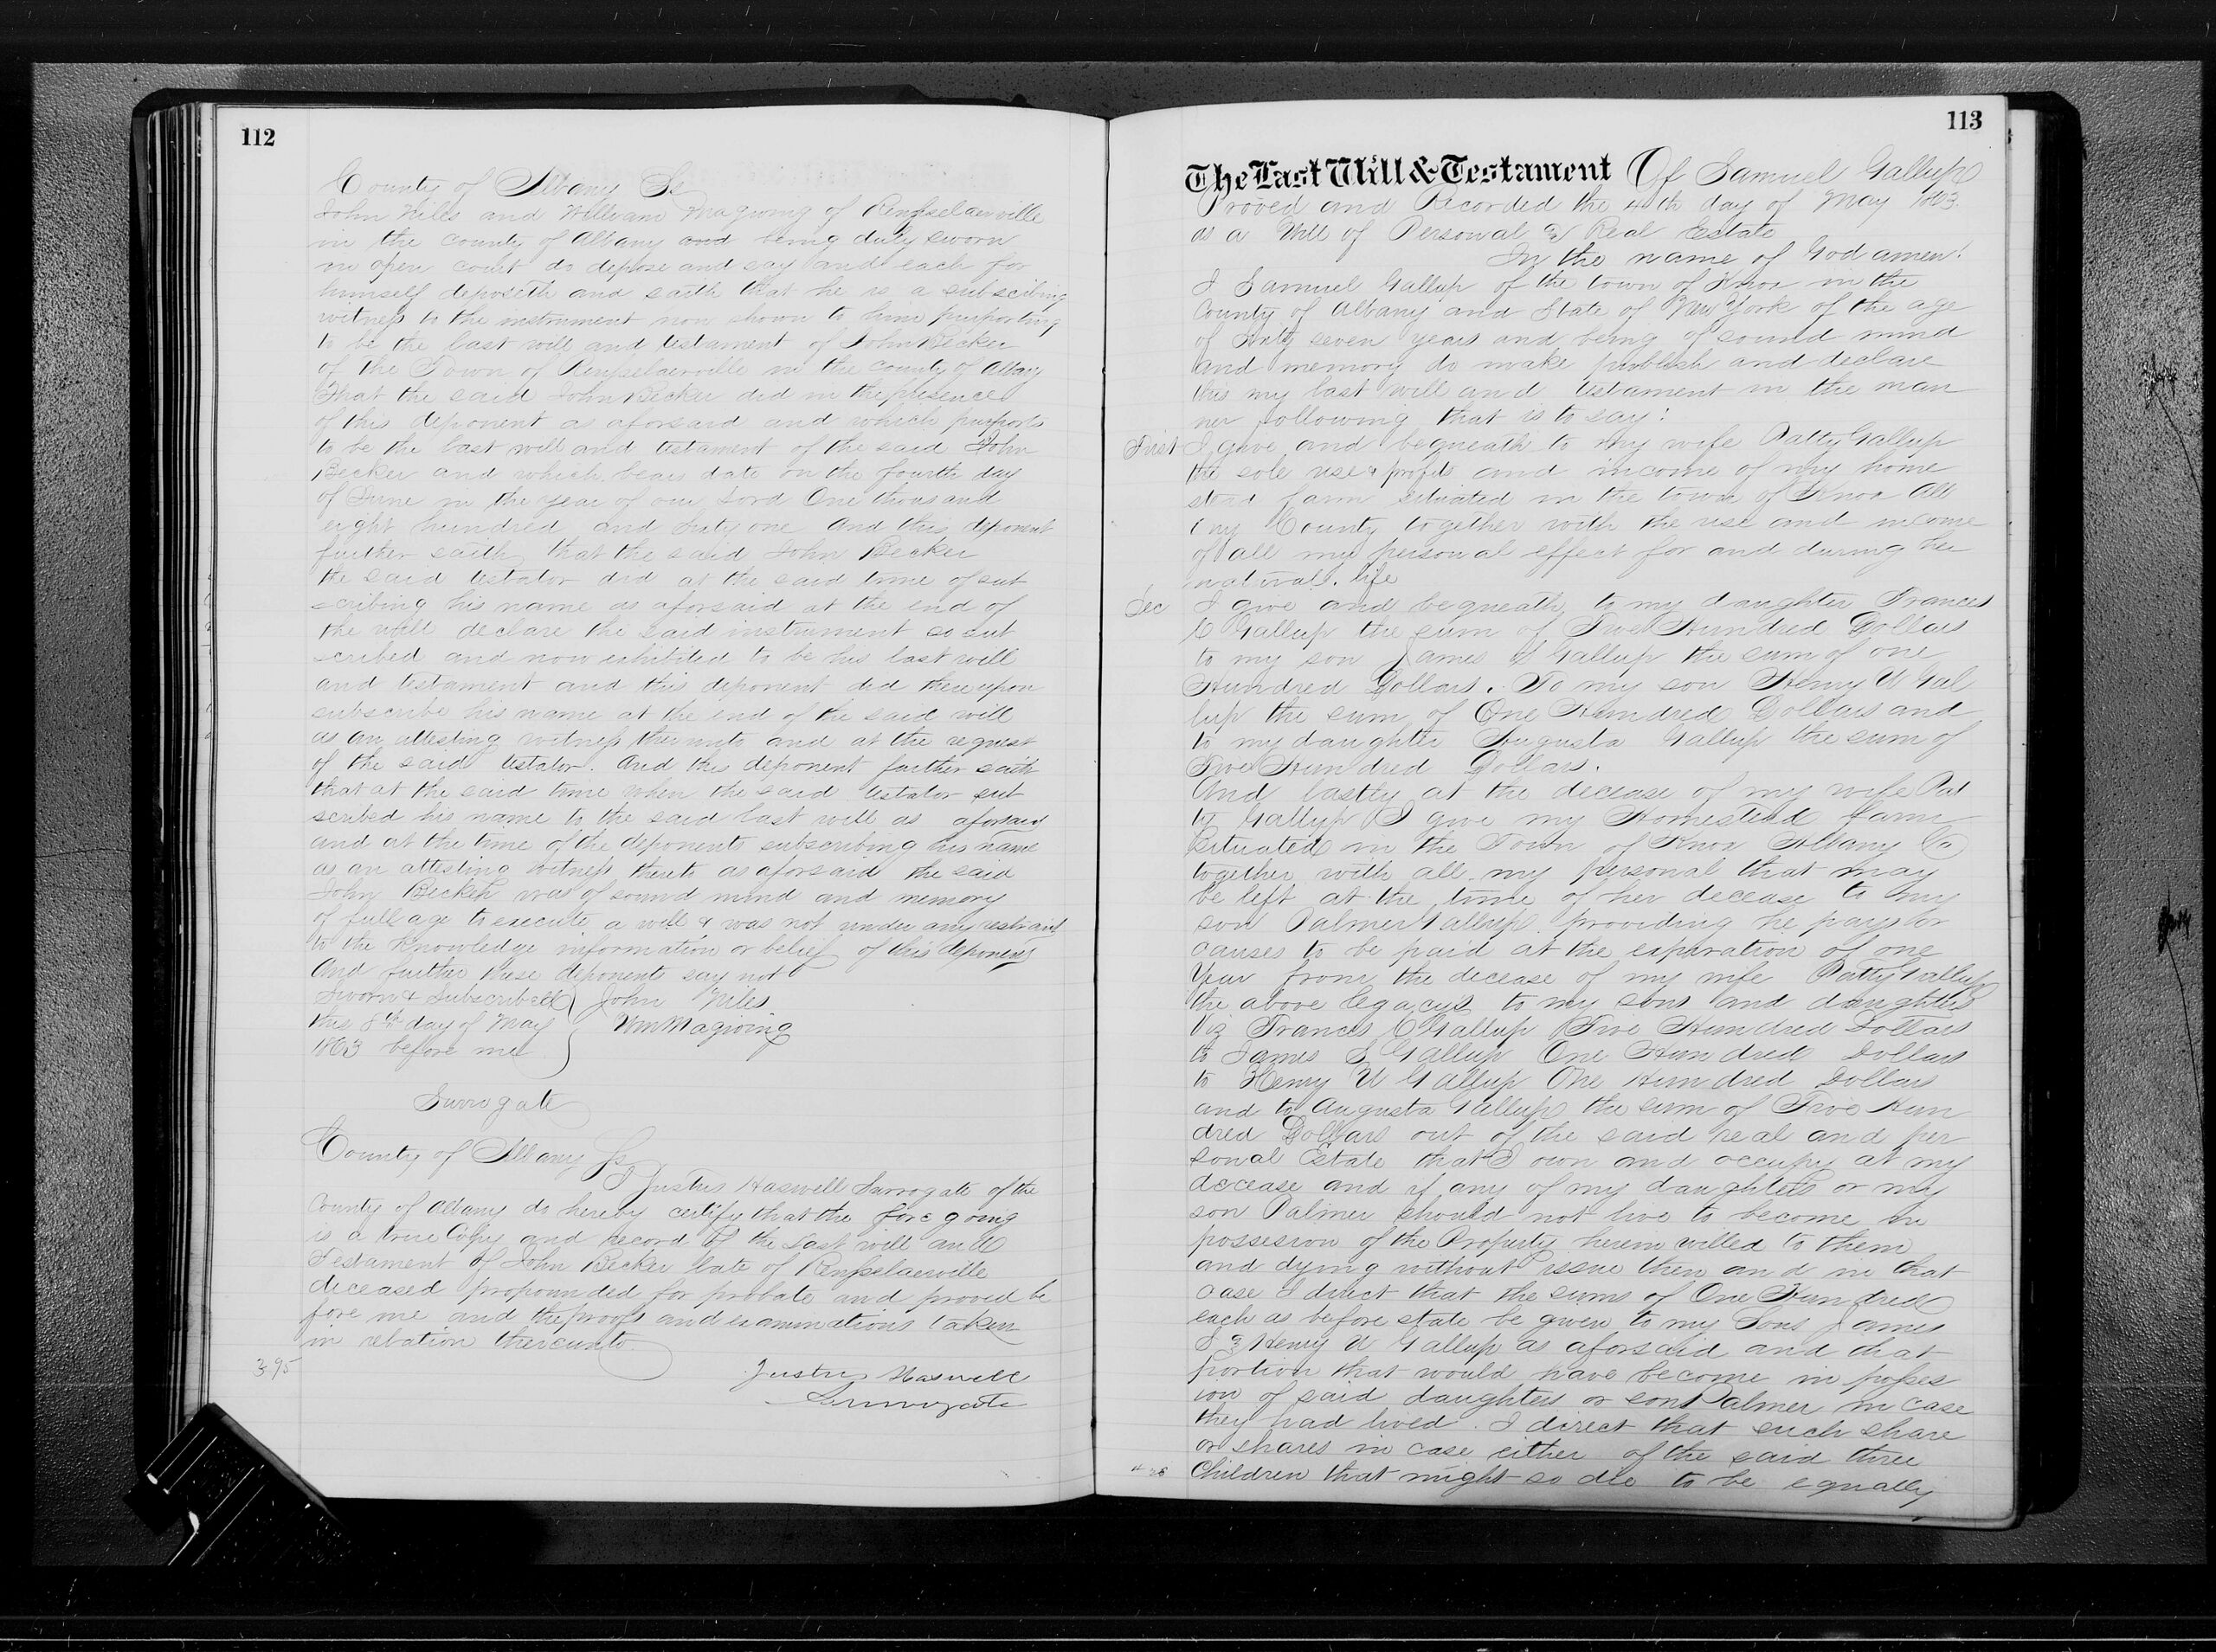 112
County of Albany Ss
John Niles and William Magwing of Rensselaerville
in the county of Albany and being duly sworn
in open court do depose and say and each for
himself deposeth and saith that he is a subscibing
witness to the instrument now shown to him purporting
to be the last will and testament of John Becker
of the Town of Rensselaerville in the county of Albany
That the said John Becker did in the presence
of this deponent as aforsaid and which purports
to be the last will and testament of the said John
Becker and which bears date on the fourth day
of June in the year of our Lord One thousand
eight hundred and sixty one and this deponent
further saith that the said John Becker
the said testator did at the said time of sub
scribing his name as aforsaid at the end of
the will declare the said instrument so sub
scribed and now exhibited to be his last will
and testament and this deponent did thereupon
subscribe his name at the end of the said will
as an attesting witness thereunto and at the request
of the said testator. And this deponent further saith
that at the said time when the said testator sub
scribed his name to the said last will as aforsaid
and at the time of the deponents subscribing his name
as an attesting witness thereto as aforsaid the said
John Becker was of sound mind and memory
of full age to execute a will & was not under any restraint
to the knowledge information or belief of this deponent
And further these deponents say not
Sworn & Subscribed John Niles
this 8th day of May Wm Magwing
1863 before me
Surrogate
County of Albany Ss
I Justus Haswell Surrogate of the
County of Albany do hereby certify that the fore going
is a true Copy and record of the Last will and
Testament of John Becker late of Rensselaerville
deceased propounded for probate and proved be
fore me and the proofs and examinations taken
in relation thereunto.
395
Justus Haswell
Surrogate
113
The Last Will & Testament Of Samuel Gallup
Proved and Recorded the 4th day of May 1863
as a Will of Personal & Real Estate
In the name of God amen!
I Samuel Gallup of the town of Knox in the
County of Albany and State of New York of the age
of Sixty seven years and being of sound mind
and memory do make publish and declare
this my last will and testament in the man
ner following that is to say:
First I give and bequeath to my wife Patty Gallup
the sole use & profits and income of my home
stead farm situated in the town of Knox Alb
any County together with the use and income
of all my personal effect for and during her
natural. life
Sec I give and bequeath to my daughter Frances
C Gallup the sum of Two Hundred Dollars
to my son James S Gallup the sum of one
Hundred Dollars. To my son Henry U Gal
lup the sum of One Hundred Dollars and
to my daughter Augusta Gallup the sum of
Two Hundred Dollars.
And lastly at the decease of my wife Pat
ty Gallup I give my Homestead farm
Situated in the Town of Knox Albany Co
together with all my personal that may
be left at the time of her decease to my
son Palmer Gallup providing he pays or
causes to be paid at the expiration of one
Year from the decease of my wife Patty Gallup
the above legacys to my sons and daughters
Viz Frances C Gallup Two Hundred Dollars
to James S Gallup One Hundred Dollars
to Henry U Gallup One Hundred Dollars
and to Augusta Gallup the sum of Two Hun
dred Dollars out of the said real and per
sonal Estate that I own and occupy at my
decease and if any of my daughters or my
son Palmer should not live to become in
possesion of the Property herein willed to them
and dying without issue then and in that
case I direct that the sums of One Hundred
each as before state be given to my Sons James
S & Henry U Gallup as aforsaid and that
portion that would have become in posses
ion of said daughters or sons Palmer in case
they had lived. I direct that such share
or shares in case either of the said three
Children that might so die to be equally